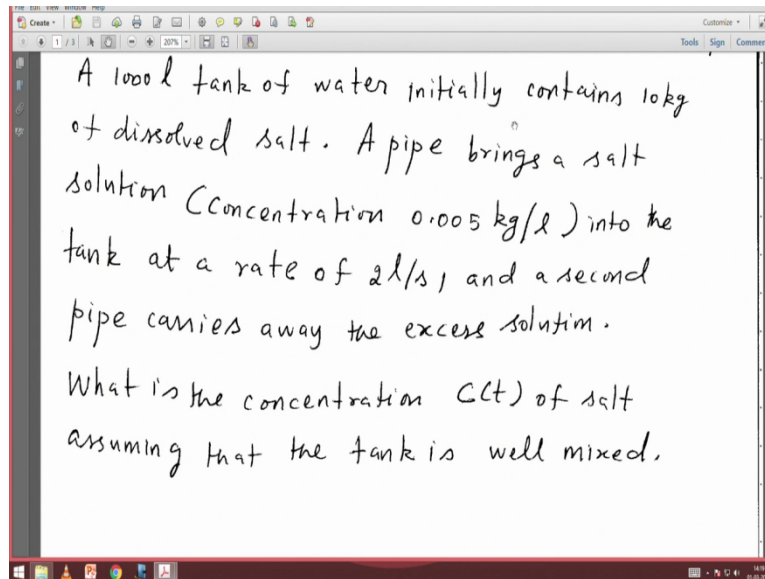 File Edit View Window Help
Create
Customize
1 / 3
207%
Tools Sign Comment
A 1000 l tank of water initially contains 10 kg
of dissolved salt. A pipe brings a salt
solution (concentration 0.005 kg/l) into the
tank at a rate of 2l/s, and a second
pipe carries away the excess solution.
What is the concentration C(t) of salt
assuming that the tank is well mixed.